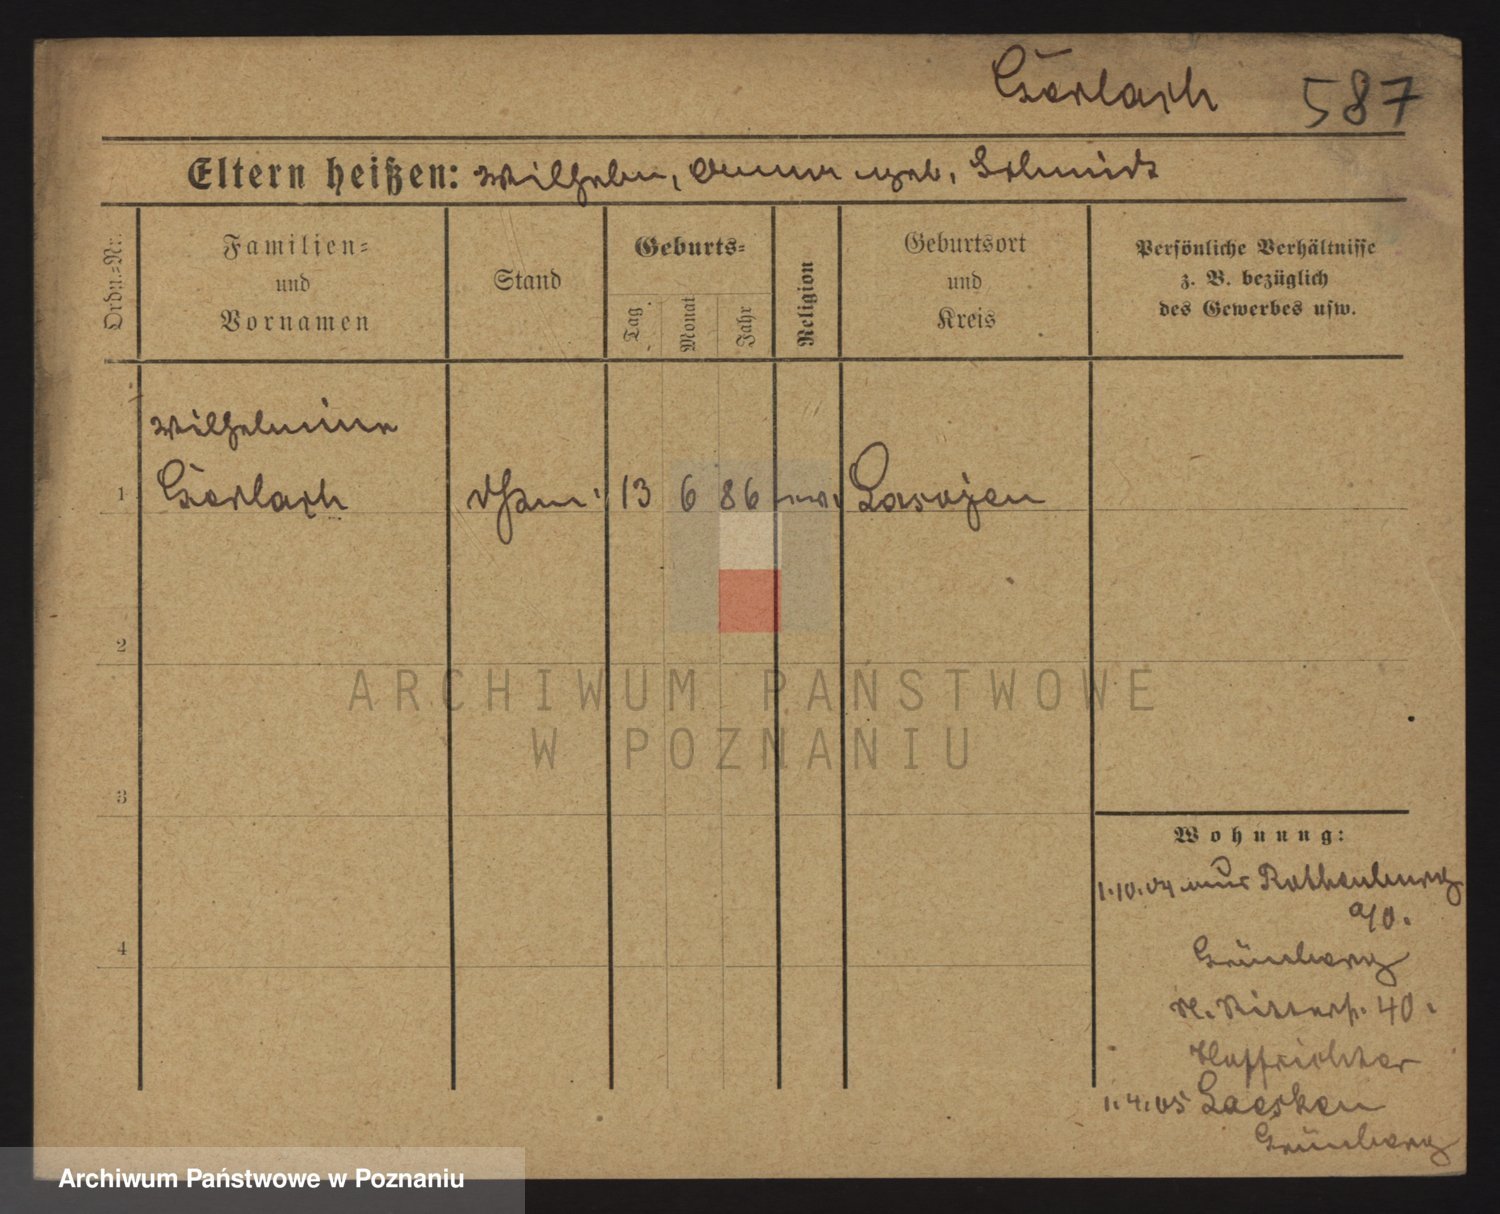 Gerlach 587
Eltern heißen: Wilhelm, Anna geb. Schmidt
Ordn.=Nr.
Familien=
und
Vornamen
Stand
Geburts=
Tag
Monat
Jahr
Religion
Geburtsort
und
Kreis
Persönliche Verhältnisse
z. B. bezüglich
des Gewerbes usw.
Wilhelmine
1 Gerlach 13 6 86 ev.
2
3
4
Wohnung:
1.10.04 aus Rothenburg
a/O.
Grünberg
40.
Hoffrichter
1.4.05
Grünberg
ARCHIWUM PAŃSTWOWE
W POZNANIU
Archiwum Państwowe w Poznaniu